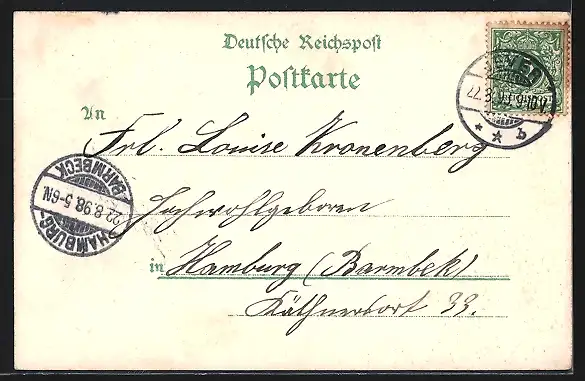 Deutsche Reichspost
Postkarte
An
Frl. Louise Kronenberg
Hochwohlgeboren
in Hamburg (Barmbek)
Käthnerkort 33.
HAMBURG-BARMBECK
22.8.98.5-6N.
* * b